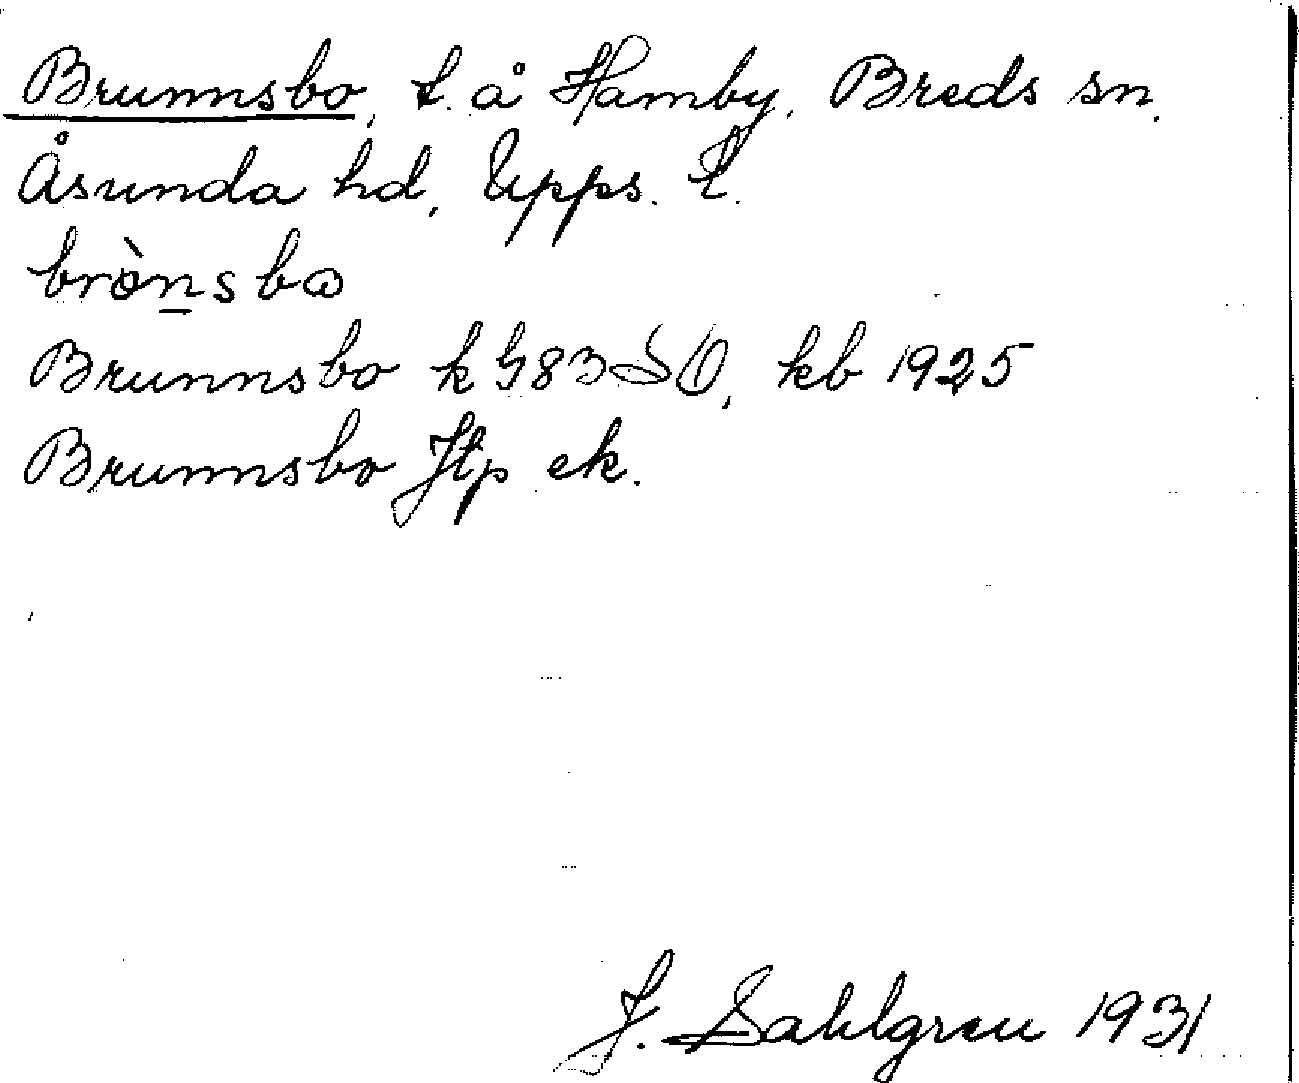 Brunnsbo, t. å Hamby, Breds sn.
Åsunda hd, Upps. l.
brònsbω
Brunnsbo k G83SO, kb 1925
Brunnsbo Jtp ek.
J. Sahlgren 1931